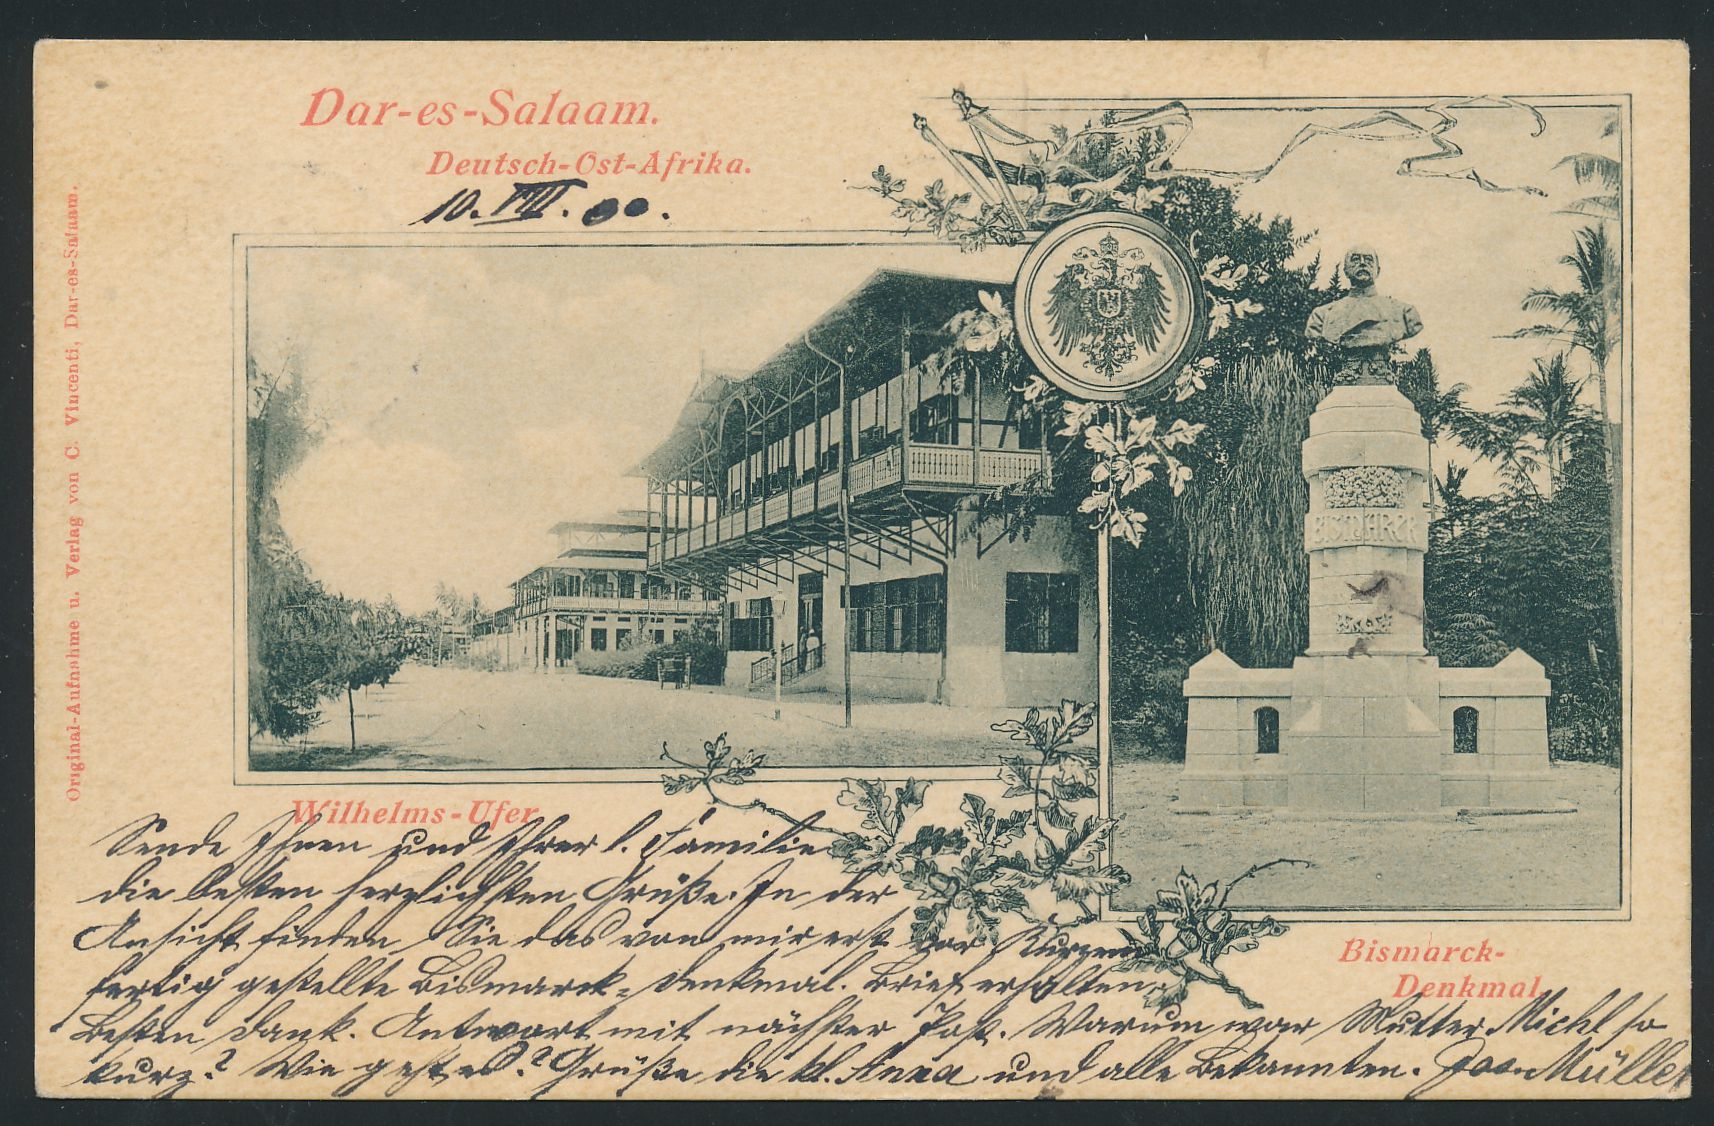 Dar-es-Salaam.
Deutsch-Ost-Afrika.
10. VIII. 00.
Original-Aufnahme u. Verlag von C. Vincenti, Dar-es-Salaam.
BISMARCK
Wilhelms-Ufer.
Bismarck-
Denkmal.
Sende Ihnen und Ihrer l. Familie
die besten herzlichsten Grüße. In der
Ansicht finden Sie das von mir erst vor Kurzem
fertig gestellte Bismarck-Denkmal. Brief erhalten.
Besten Dank. Antwort mit nächster Post. Warum war Mutter Michl so
kurz? Wie geht es? Grüße die kl. Anna und alle Bekannten. Jos. Müller